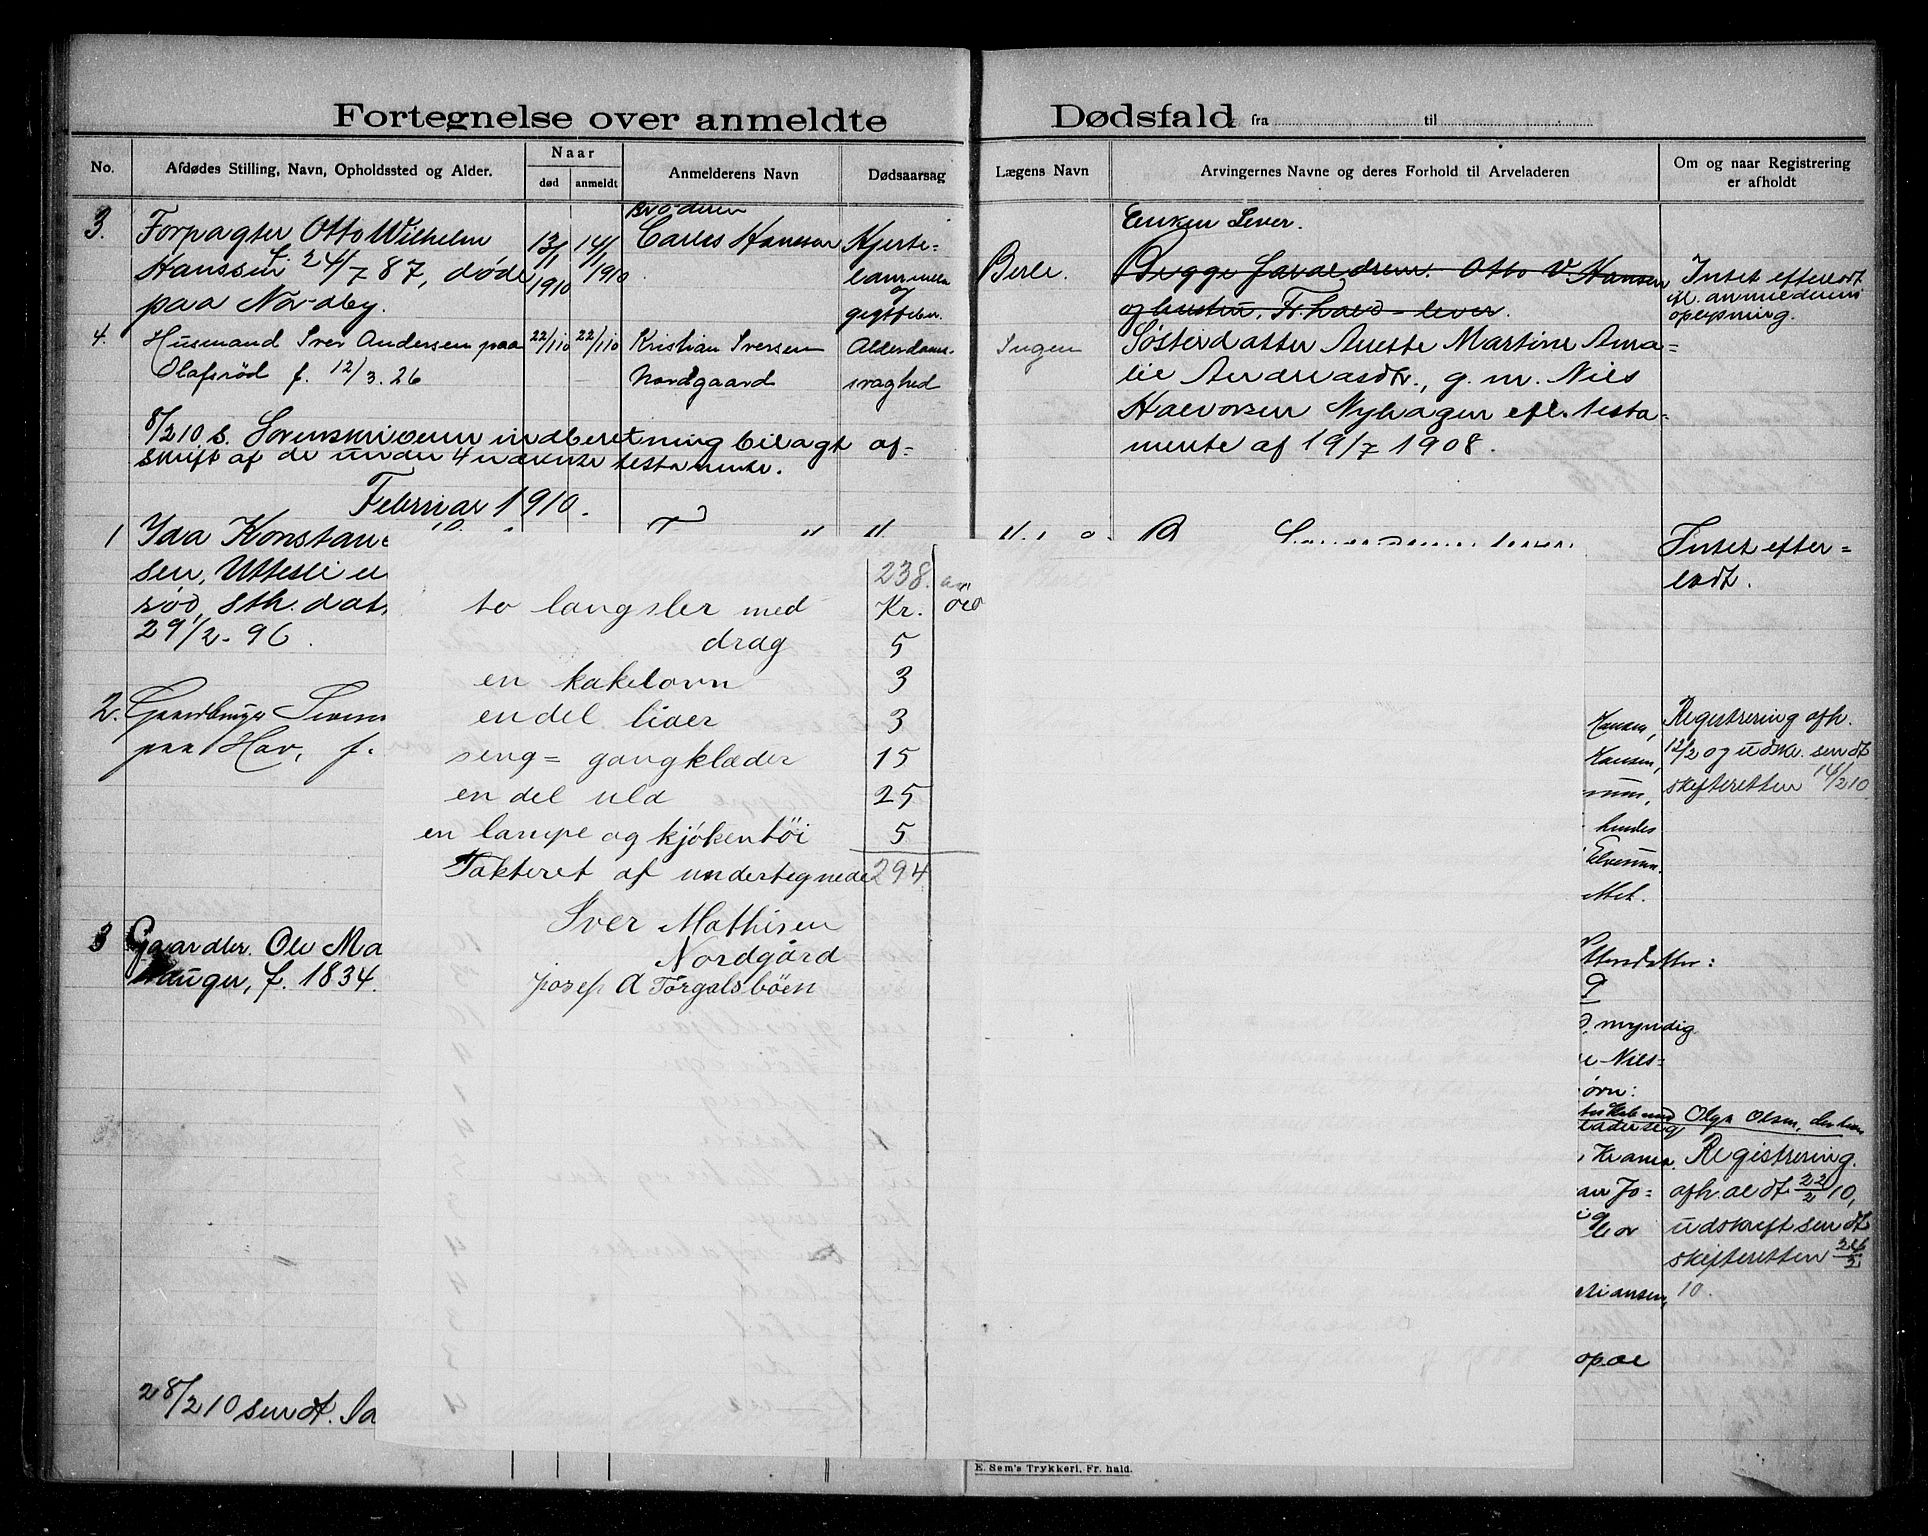 Fortegnelse over anmeldte Dødsfald fra til
No.
Afdødes Stilling, Navn, Opholdssted og Alder.
Naar
død
anmeldt
Anmelderens Navn
Dødsaarsag
Lægens Navn
Arvingernes Navne og deres Forhold til Arveladeren
Om og naar Registrering
er afholdt
3.
Forpagter Otto Wilhelm
Hanssen f. 24/7 87, døde
paa Nordby.
13/1
1910
14/1
1910
Broderen
Carles Hansen
Hjerte-
lammelse
og
gigtfeber.
Berle.
Enken Lever.
Otto V. Hansen
og hustru, Fr.hald - lever.
Intet efterladt
ifl. anmelderens
oplysning.
4.
Husmand Iver Andersen paa
Olafsrød f. 12/3. 26
22/1 10
22/1 10
Kristian Iversen
Nordgaard
Alderdoms-
svaghed
Ingen
Søsterdatter Aneste Martine Ama=
lie Andreasdtr., g. m. Niels
Halvorsen Nyhagen efl. testa-
mente af 19/7 1908.
8/2 10 s. Sorenskriveren indberetning bilagt af-
skrift af de under 4 nævnte testamente.
Februar 1910.
1
Ida Konstan
sen, Utteslie
rød, sth. dat
29/2 - 96.
Intet efter=
ladt.
2.
Gaardbruger
paa Hav, f.
Hansen,
Hansen,
hendes
Registrering afh.
12/2 og udskr. sendt
skifteretten 14/2 10
3
Gaardbr. Ole Ma
Hauger, f. 1834.
ttersdatter:
myndig.
e Niels=
ørn:
an Jo=
stiansen,
opal
Olga Olsen,
Registrering.
afh.aldt 22/2 10,
udskrift sendt
skifteretten 26/2
10.
28/2 10 sendt. Sa
238.
Kr.
to langsler med
drag 5
en kakelovn 3
en del liaer 3
seng= gangklæder 15
en del uld 25
en lampe og kjökentöi 5
Takteret af undertegnede 294
Iver Mathisen
Nordgård
josep A Torgalsböen
E. Sem's Trykkeri, Fr.hald.